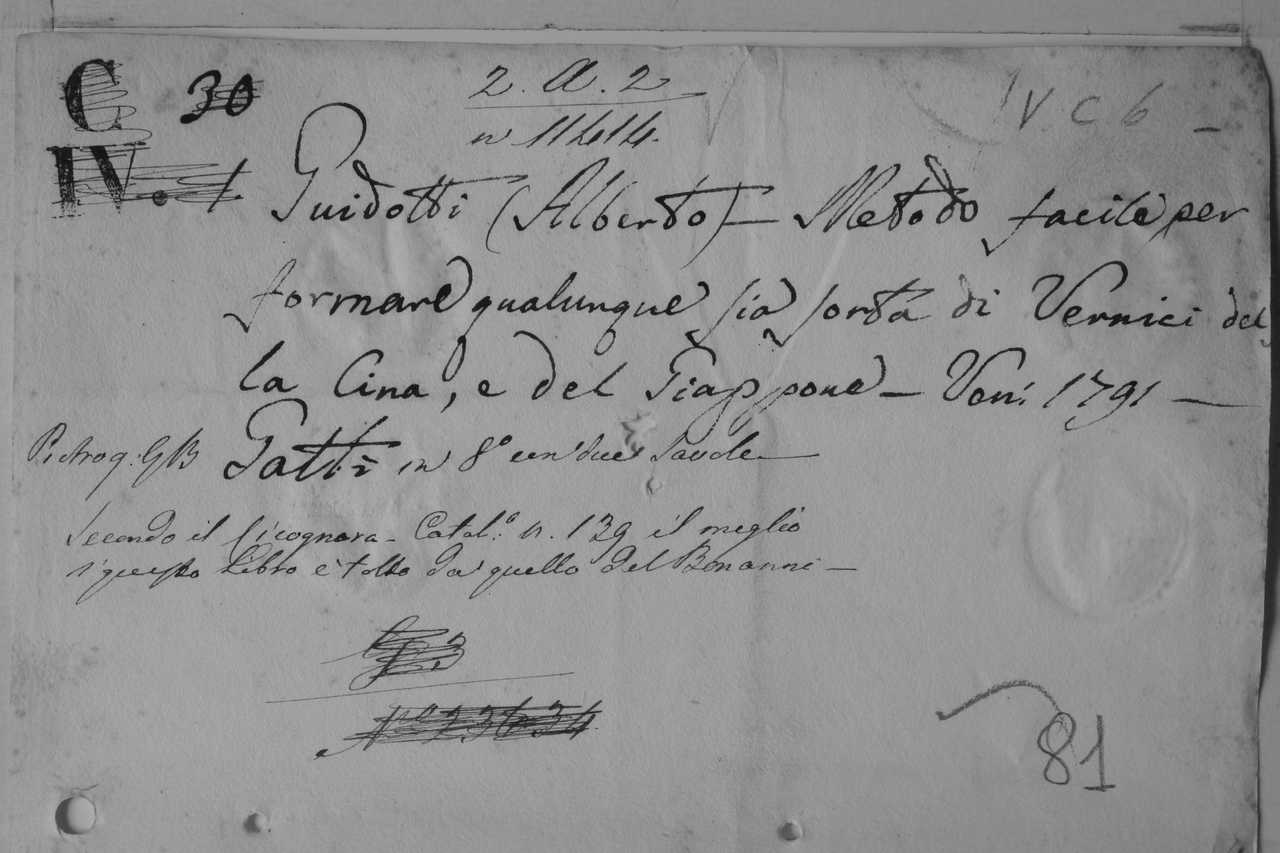 C 30
2. A. 2
IV. C 6
n 11414.
IV. 1
Guidotti (Alberto) – Metodo facile per
formare qualunque sia sorta di Vernici del
la Cina, e del Giappone – Ven: 1791 –
Gatti in 8° con due Tavole
Secondo il Cicognara – Catal.° n. 139 il meglio
di questo Libro è tolto da quello del Bonanni –
N° 23634
81